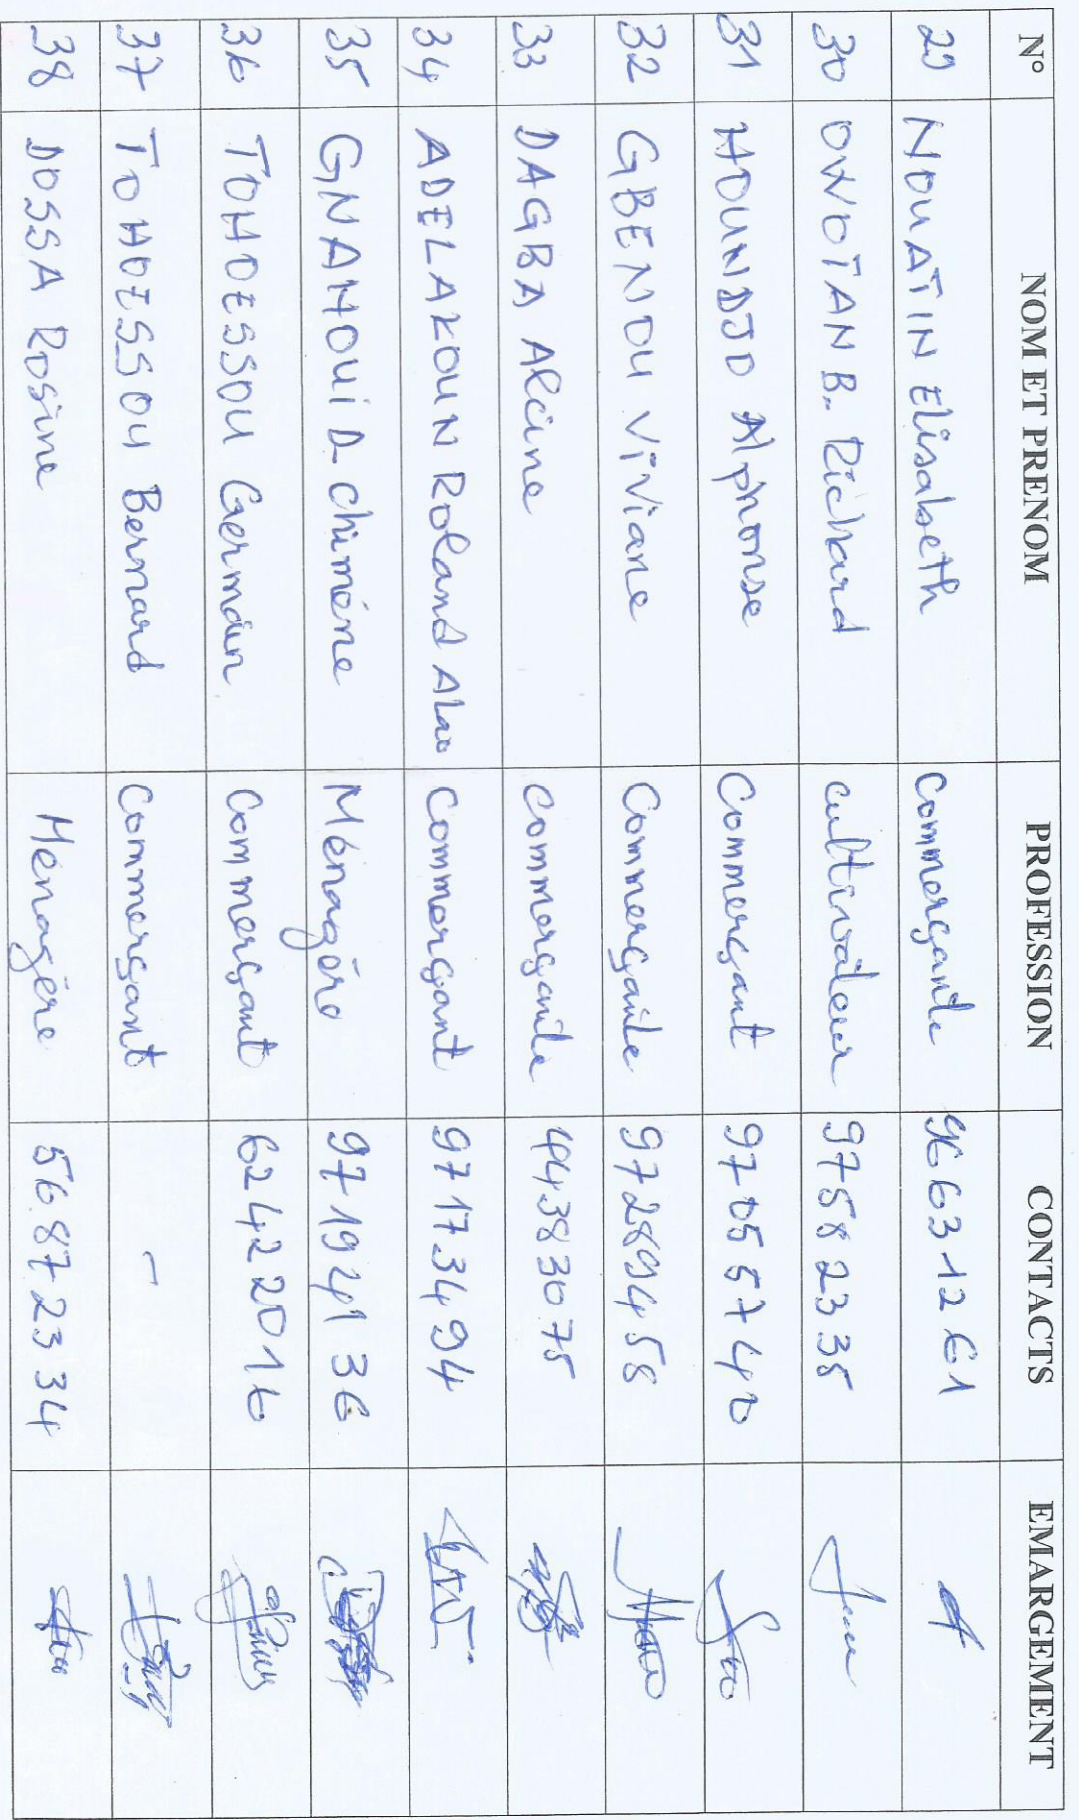 N° NOM ET PRENOM PROFESSION CONTACTS EMARGEMENT
29 NOUATIN Elisabeth Commerçante 96631261
30 OWOTAN B. Richard cultivateur 97582335
31 HOUNDJO Alphonse Commerçant 97055740
32 GBENOU Viviane Commerçante 97289458
33 DAGBA Alcine Commerçante 44383075
34 ADELAKOUN Roland Alao Commerçant 97173494
35 GNAHOUI D. Chimène Ménagère 97194136
36 TOHOESSOU Germain Commerçant 62422016
37 TOHOESSOU Bernard Commerçant -
38 DOSSA Rosine Ménagère 56872334